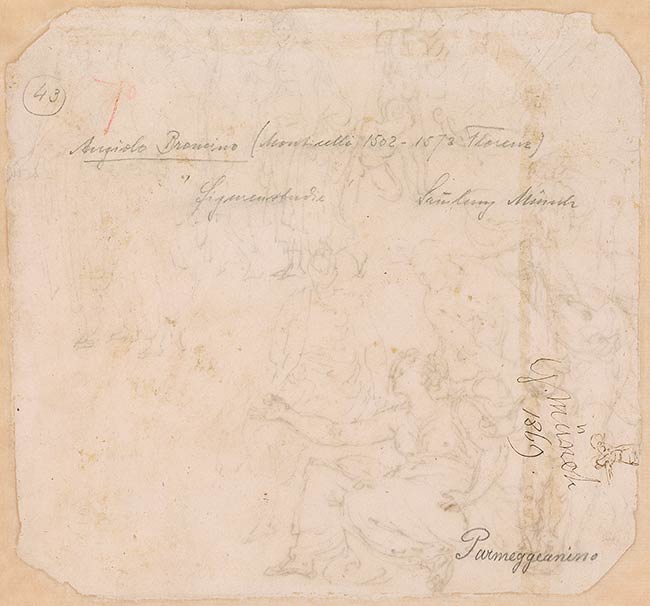 43
Angiolo Bronzino (Monticelli 1502 - 1573 Florenz)
" Figurenstudie Samlung Münch
G. Münch
1869.
Parmeggeanino